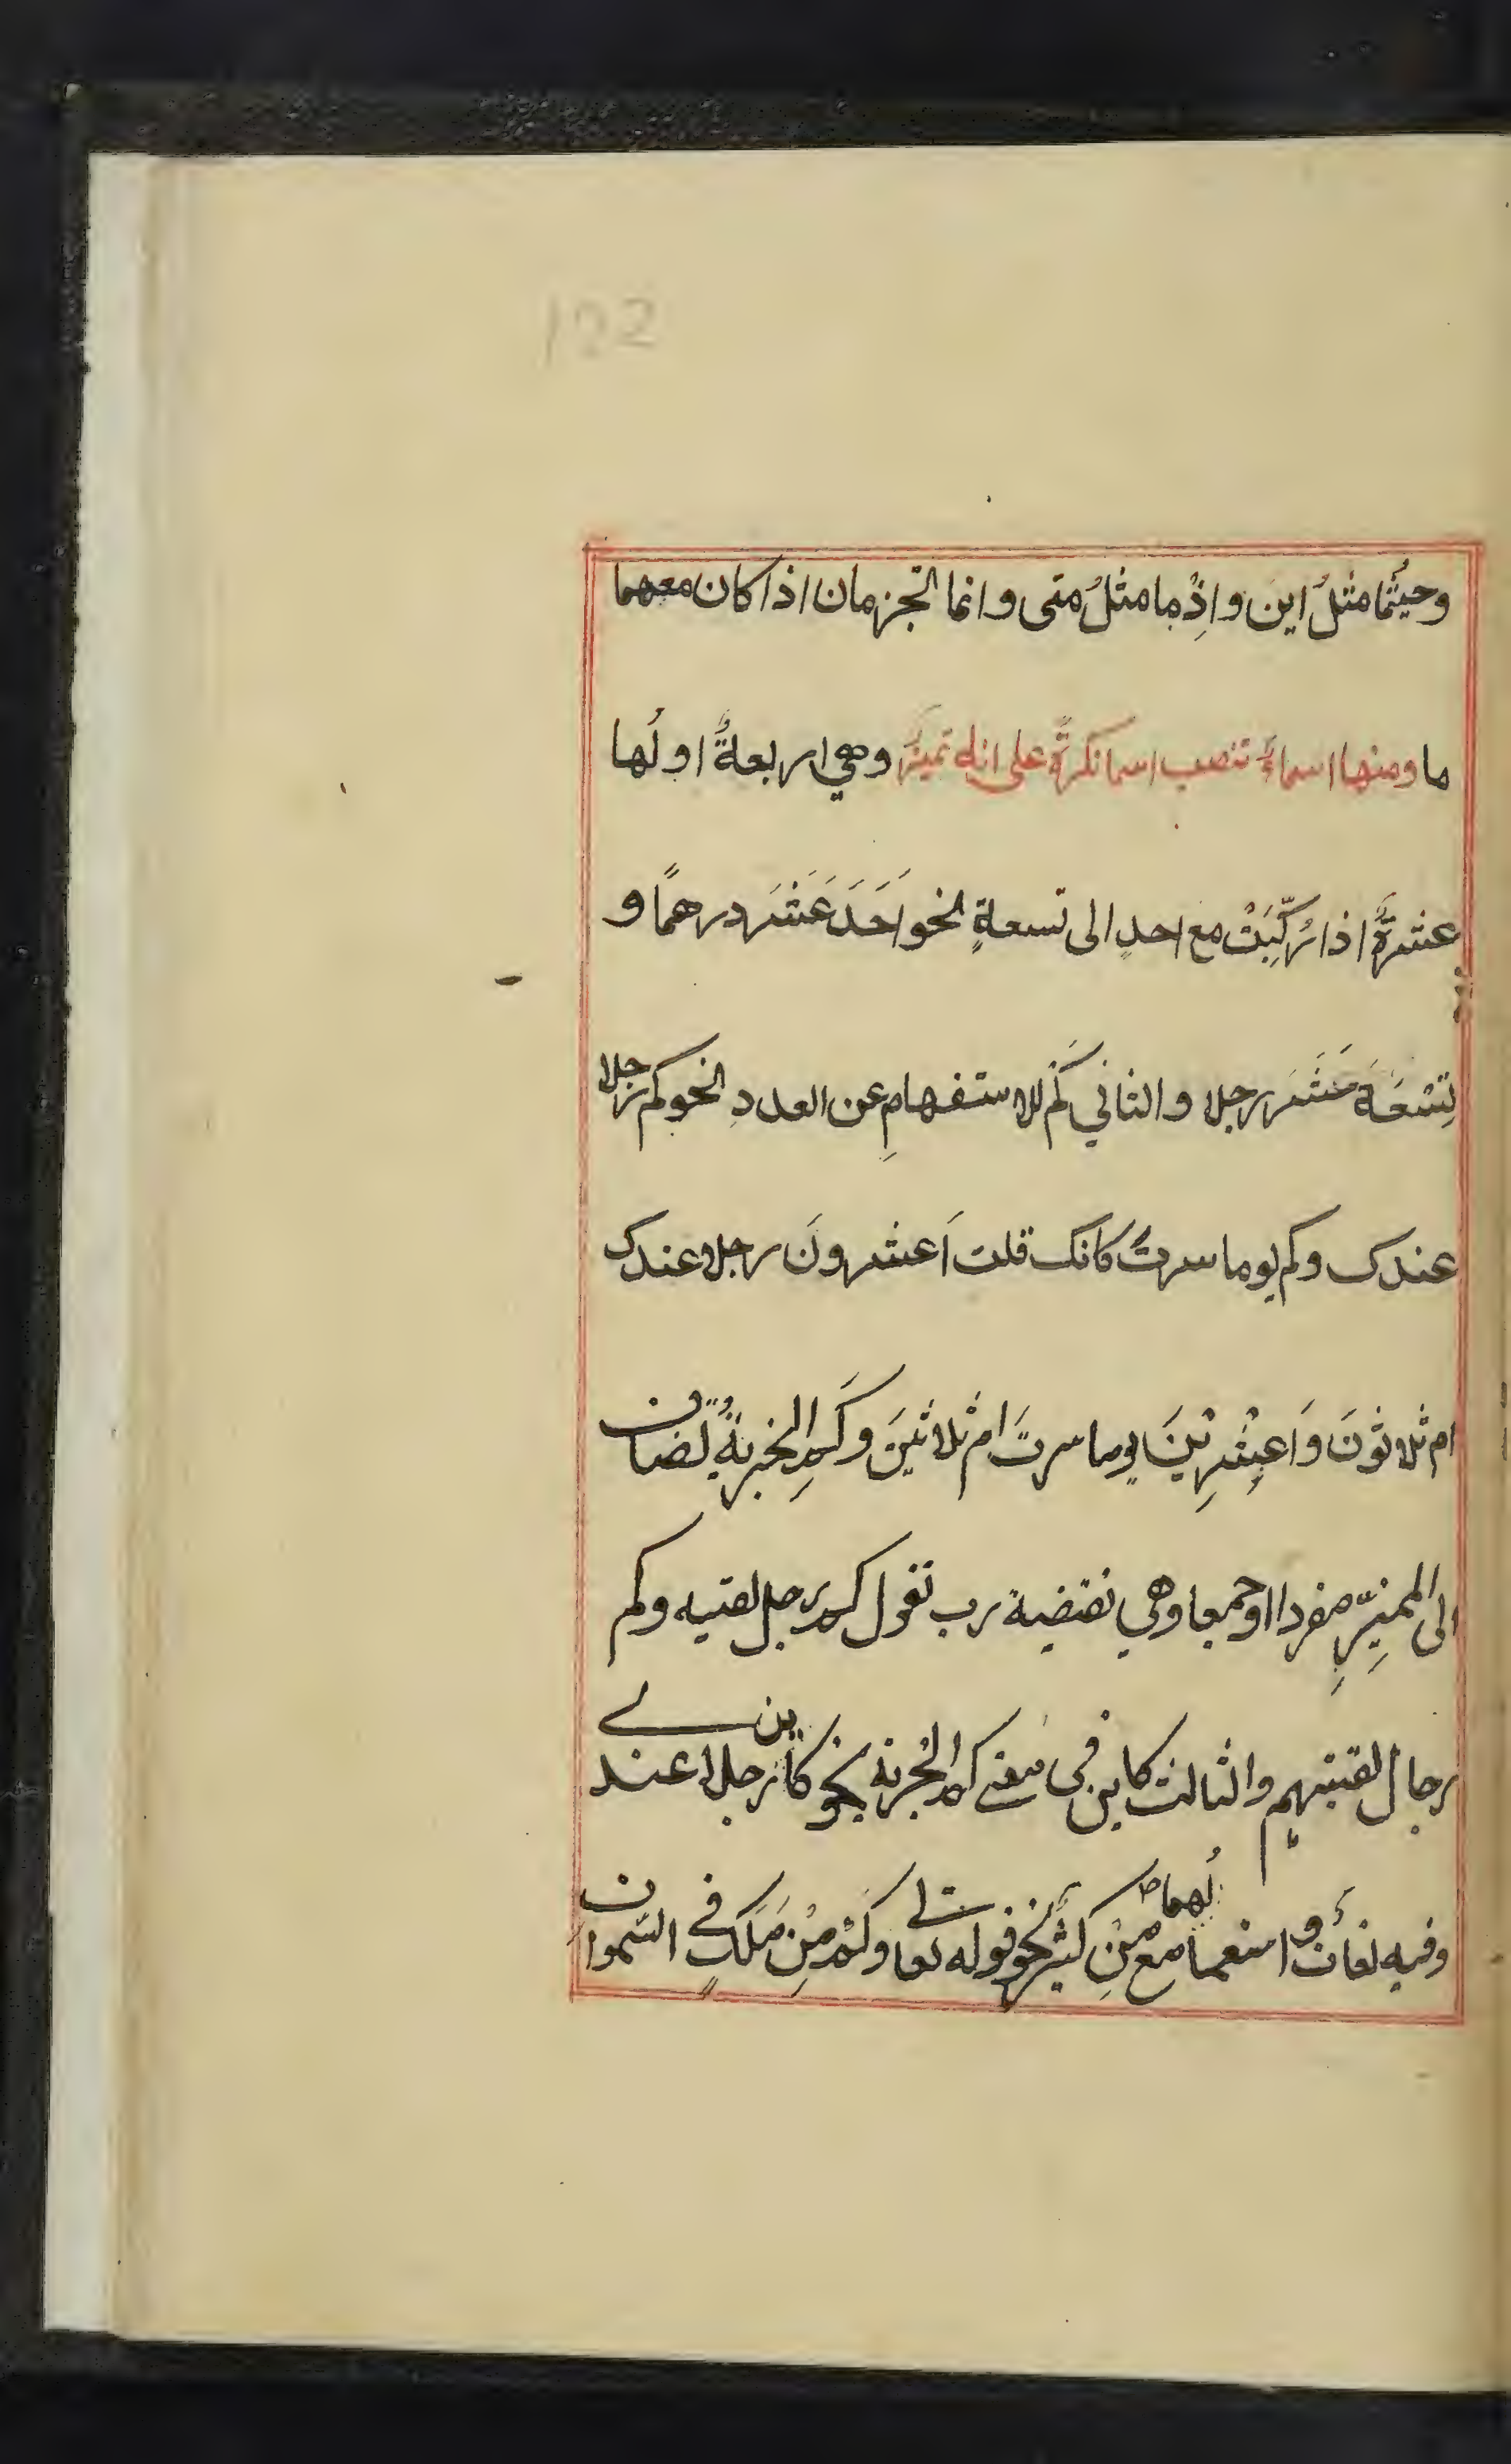 122
وحيثُما مثلُ اين واِذْما مثلُ متى وانما تجزمان اذا كان معهما
ما ومنها اسماءٌ تنصب اسما نكرةً على انه تميزٌ وهي اربعةٌ اولُها
عشرةٌ اذا رُكِّبَتْ مع احدٍ الى تسعةٍ نحو اَحَدَ عَشَرَ درهمًا و
تِسْعَةَ عَشَرَ رجلا والثاني كَمْ للاستفهامِ عن العددِ نحو كم رجلا
عندك وكم يوما سرتَ كانك قلت اَعشرونَ رجلا عندك
ام ثلاثونَ وَاَعِشْرِيْنَ يوما سرتَ ام ثلاثينَ وكَمِ الخبريةُ تُضاف
الى المميّزِ مفردا او جمعا وهي نقيضة رب تقول كم رجل لقيته وكم
رجال لقيتهم والثالث كاين في معنى كم الخبرية نحو كاين رجلا عندي
وفيه لغات و استعمالُهما مع مِنْ كثيرٌ نحو قوله تعالى وكَمْ مِنْ مَلَكٍ في السّموات